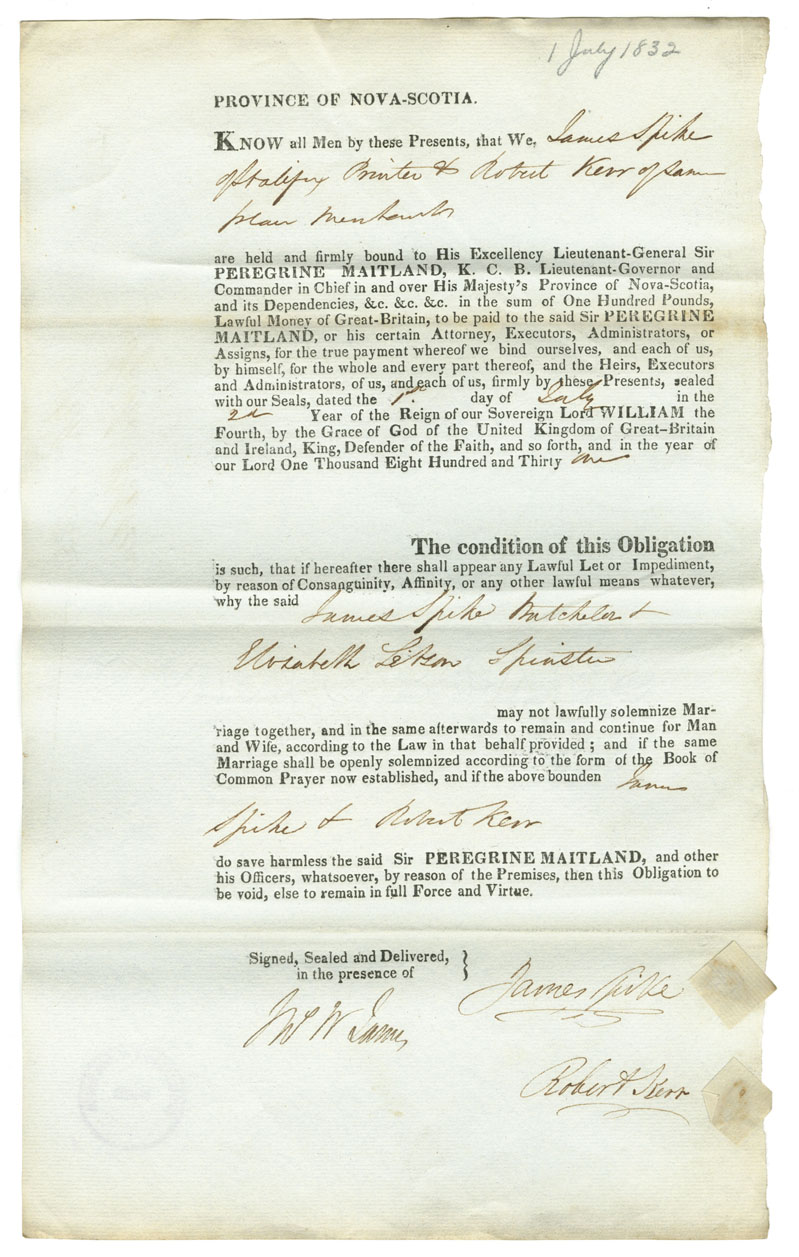 1 July 1832
PROVINCE OF NOVA-SCOTIA.
KNOW all Men by these Presents, that We, James Spike
of Halifax Printer & Robert Kerr of same
place
are held and firmly bound to His Excellency Lieutenant-General Sir
PEREGRINE MAITLAND, K. C. B. Lieutenant-Governor and
Commander in Chief in and over His Majesty's Province of Nova-Scotia,
and its Dependencies, &c. &c. &c. in the sum of One Hundred Pounds,
Lawful Money of Great-Britain, to be paid to the said Sir PEREGRINE
MAITLAND, or his certain Attorney, Executors, Administrators, or
Assigns, for the true payment whereof we bind ourselves, and each of us,
by himself, for the whole and every part thereof, and the Heirs, Executors
and Administrators, of us, and each of us, firmly by these Presents, sealed
with our Seals, dated the 1st. day of July in the
2d Year of the Reign of our Sovereign Lord WILLIAM the
Fourth, by the Grace of God of the United Kingdom of Great-Britain
and Ireland, King, Defender of the Faith, and so forth, and in the year of
our Lord One Thousand Eight Hundred and Thirty one
The condition of this Obligation
is such, that if hereafter there shall appear any Lawful Let or Impediment,
by reason of Consanguinity, Affinity, or any other lawful means whatever,
why the said James Spike Batchelor &
Elizabeth Letson Spinster
may not lawfully solemnize Mar-
riage together, and in the same afterwards to remain and continue for Man
and Wife, according to the Law in that behalf provided ; and if the same
Marriage shall be openly solemnized according to the form of the Book of
Common Prayer now established, and if the above bounden James
Spike & Robert Kerr
do save harmless the said Sir PEREGRINE MAITLAND, and other
his Officers, whatsoever, by reason of the Premises, then this Obligation to
be void, else to remain in full Force and Virtue.
Signed, Sealed and Delivered,
in the presence of
James Spike
W James
Robert Kerr